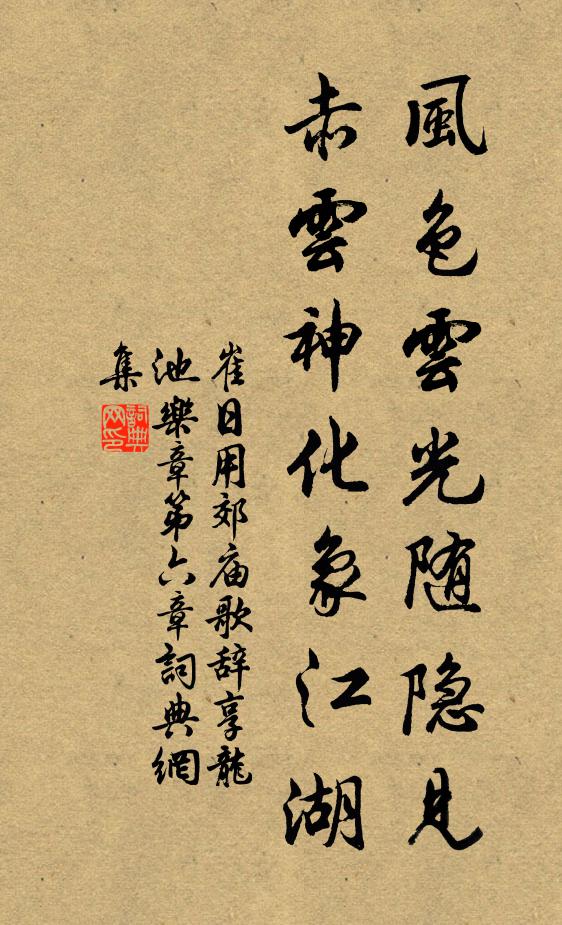 風色雲光随隐見
赤雲神化象江湖
崔日用郊庙歌辞享龍
池樂章第六章詞典網
集
詞典
网印